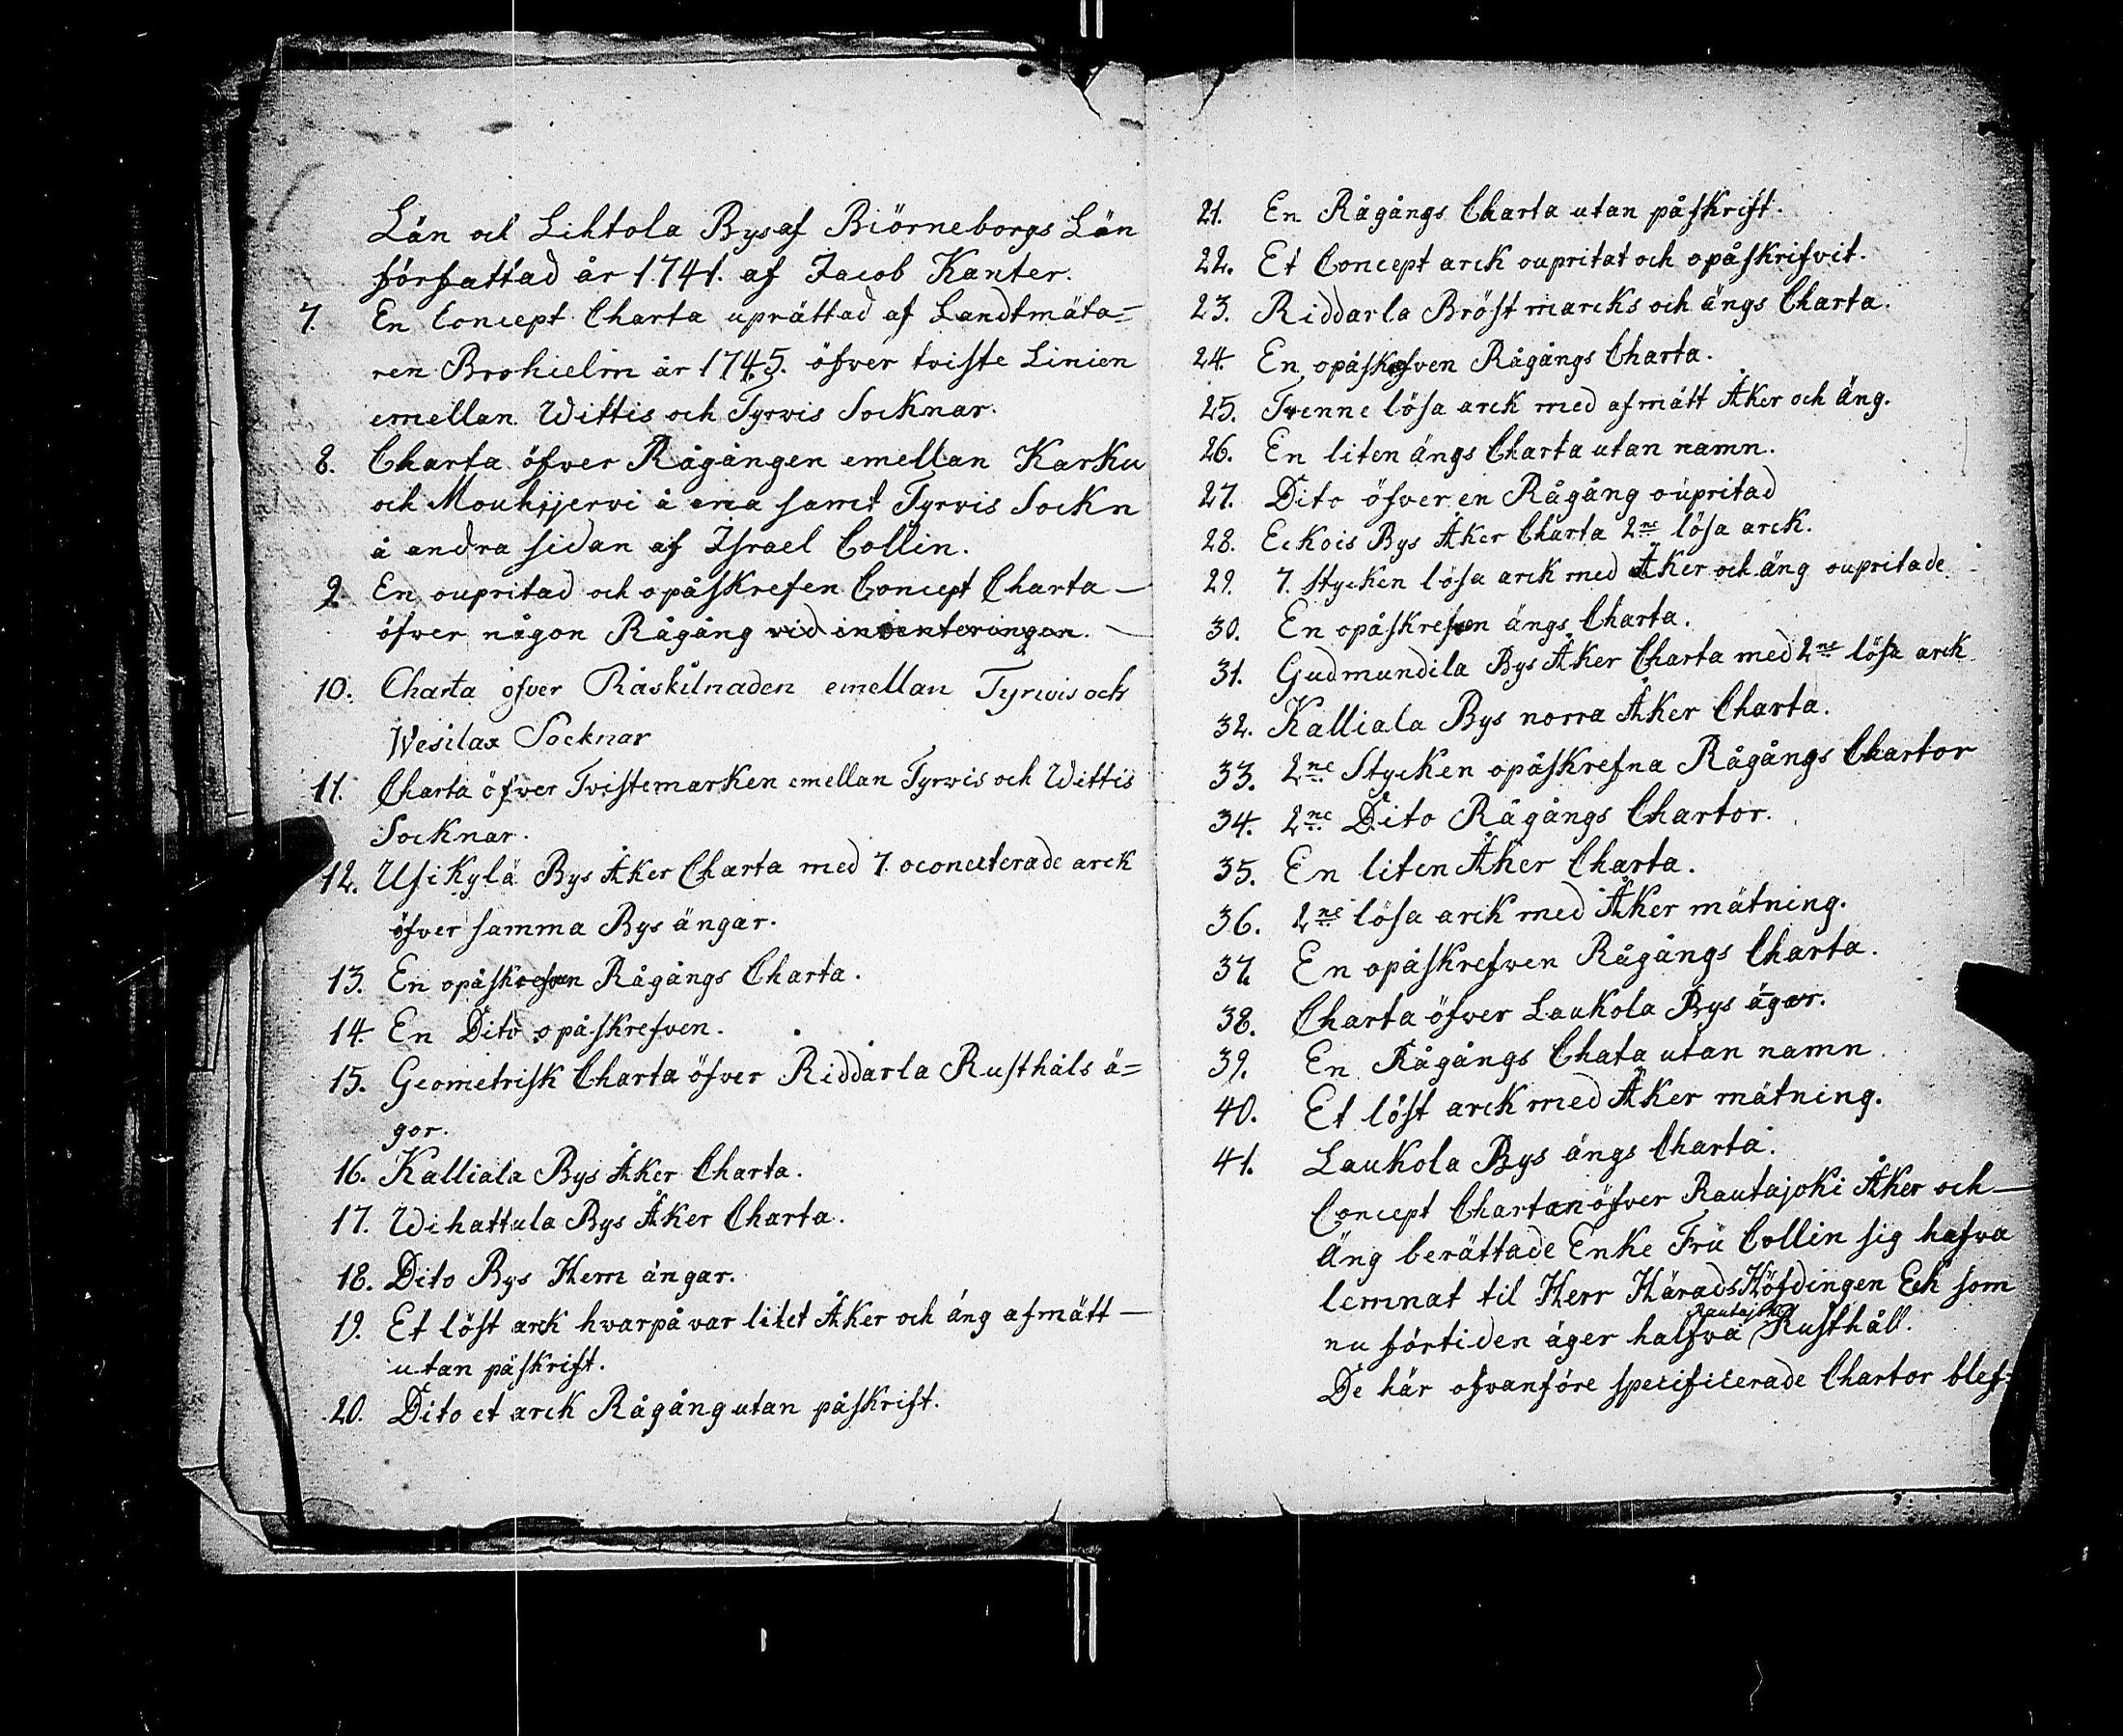 Län och Lihtola Bys af Biörneborgs Län
författad år 1741. af Jacob Kanter.
7. En Concept Charta uprättad af Landtmäta=
ren Brohielm år 1745. öfver tviste Linien
emellan Wittis och Tyrvis Socknar.
8. Charta öfver Rågången emellan Karku
och Mouhijervi å ena samt Tyrvis Sockn
å andra sidan af Israel Collin.
9. En oupritad och opåskrefen Concept Charta —
öfver någon Rågång vid inventeringen. —
10. Charta öfver Råskilnaden emellan Tyrvis och
Wesilax Socknar
11. Charta öfver Tvistemarken emellan Tyrvis och Wittis
Socknar.
12. Usikylä Bys Åker Charta med 7. oconecterade arck
öfver samma Bys ängar.
13. En opåskrefven Rågångs Charta.
14. En Dito opåskrefven.
15. Geometrisk Charta öfver Riddarla Rusthåls ä=
gor.
16. Kalliala Bys Åker Charta.
17. Wihattula Bys Åker Charta.
18. Dito Bys Hem ängar.
19. Et löst arck hvarpå var litet Åker och äng afmätt —
utan påskrift.
20. Dito et arck Rågång utan påskrift.
21. En Rågångs Charta utan påskrift.
22. Et Concept arck oupritat och opåskrifvit.
23. Riddarla Bröstmarcks och ängs Charta.
24. En opåskrefven Rågångs Charta.
25. Tvenne lösa arck med afmätt Åker och Äng.
26. En liten ängs Charta utan namn.
27. Dito öfver en Rågång oupritad
28. Eckois Bys Åker Charta 2ne lösa arck.
29. 7. Stycken lösa arck med Åker och äng oupritade.
30. En opåskrefven ängs Charta.
31. Gudmundila Bys Åker Charta med 2ne lösa arck
32. Kalliala Bys norra Åker Charta.
33. 2ne Stycken opåskrefna Rågångs Chartor
34. 2ne Dito Rågångs Chartor.
35. En liten Åker Charta.
36. 2ne lösa arck med Åker mätning.
37. En opåskrefven Rågångs Charta.
38. Charta öfver Laukola Bys ägor.
39. En Rågångs Chata utan namn.
40. Et löst arck med Åker mätning.
41. Laukola Bys ängs Charta.
Concept Chartan öfver Rautajoki Åker och —
Äng berättade Enke Fru Collin sig hafva
lemnat til Herr HäradsHöfdingen Eck som
nu förtiden äger halfva Rautajoki Rusthåll.
De här ofvanföre specificerade Chartor blef=